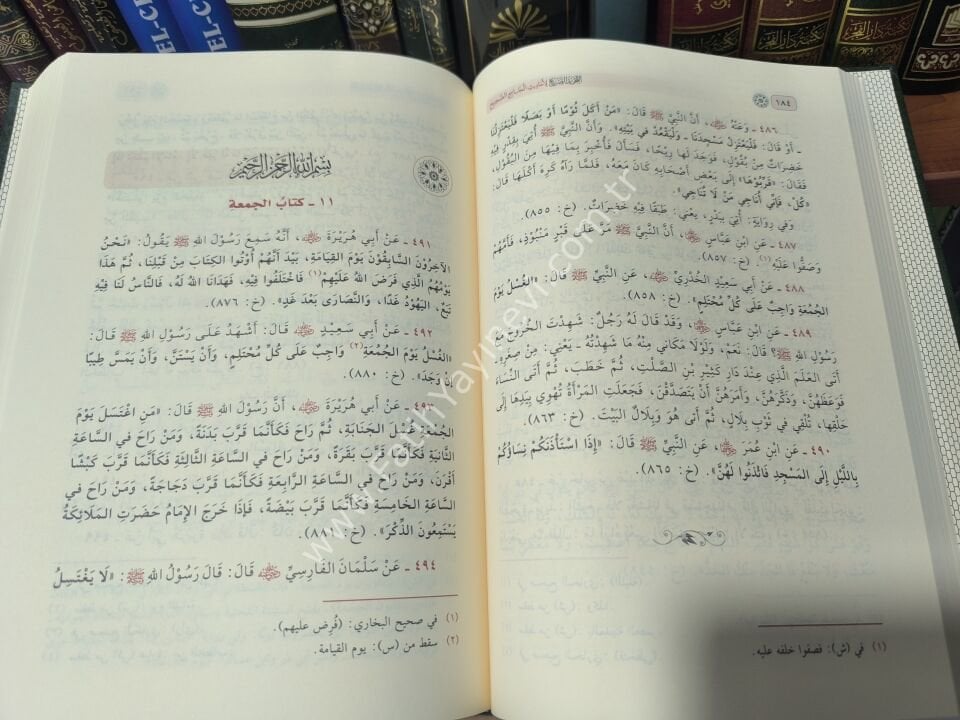 ١٨٤
٤٨٦ ـ وَعَنْهُ ﷺ، أَنَّ النَّبِيَّ ﷺ قَالَ: «مَنْ أَكَلَ ثُومًا أَوْ بَصَلًا فَلْيَعْتَزِلْنَا
ـ أَوْ قَالَ: فَلْيَعْتَزِلْ مَسْجِدَنَا ـ وَلْيَقْعُدْ فِي بَيْتِهِ». وَأَنَّ النَّبِيَّ ﷺ أُتِيَ بِقِدْرٍ فِيهِ
خَضِرَاتٌ مِنْ بُقُولٍ، فَوَجَدَ لَهَا رِيحًا، فَسَأَلَ فَأُخْبِرَ بِمَا فِيهَا مِنَ الْبُقُولِ،
فَقَالَ: «قَرِّبُوهَا» إِلَى بَعْضِ أَصْحَابِهِ كَانَ مَعَهُ، فَلَمَّا رَآهُ كَرِهَ أَكْلَهَا قَالَ:
«كُلْ، فَإِنِّي أُنَاجِي مَنْ لَا تُنَاجِي».
وَفِي رِوَايَةٍ: أُتِيَ بِبَدْرٍ، يَعْنِي: طَبَقًا فِيهِ خَضِرَاتٌ. (خ: ٨٥٥).
٤٨٧ ـ عَنِ ابْنِ عَبَّاسٍ، أَنَّ النَّبِيَّ ﷺ مَرَّ عَلَى قَبْرٍ مَنْبُوذٍ، فَأَمَّهُمْ
وَصَفُّوا عَلَيْهِ (١). (خ: ٨٥٧).
٤٨٨ ـ عَنْ أَبِي سَعِيدٍ الْخُدْرِيِّ، عَنِ النَّبِيِّ ﷺ قَالَ: «الْغُسْلُ يَوْمَ
الْجُمُعَةِ وَاجِبٌ عَلَى كُلِّ مُحْتَلِمٍ». (خ: ٨٥٨).
٤٨٩ ـ عَنِ ابْنِ عَبَّاسٍ، وَقَدْ قَالَ لَهُ رَجُلٌ: شَهِدْتَ الْخُرُوجَ مَعَ
رَسُولِ اللهِ ﷺ؟ قَالَ: نَعَمْ، وَلَوْلَا مَكَانِي مِنْهُ مَا شَهِدْتُهُ ـ يَعْنِي: مِنْ صِغَرِهِ ـ
أَتَى الْعَلَمَ الَّذِي عِنْدَ دَارِ كَثِيرِ بْنِ الصَّلْتِ، ثُمَّ خَطَبَ، ثُمَّ أَتَى النِّسَاءَ
فَوَعَظَهُنَّ، وَذَكَّرَهُنَّ، وَأَمَرَهُنَّ أَنْ يَتَصَدَّقْنَ، فَجَعَلَتِ الْمَرْأَةُ تُهْوِي بِيَدِهَا إِلَى
حَلْقِهَا، تُلْقِي فِي ثَوْبِ بِلَالٍ، ثُمَّ أَتَى هُوَ وَبِلَالٌ الْبَيْتَ. (خ: ٨٦٣).
٤٩٠ ـ عَنِ ابْنِ عُمَرَ، عَنِ النَّبِيِّ ﷺ قَالَ: «إِذَا اسْتَأْذَنَكُمْ نِسَاؤُكُمْ
بِاللَّيْلِ إِلَى الْمَسْجِدِ فَائْذَنُوا لَهُنَّ». (خ: ٨٦٥).
(١) في (ش): فصفوا خلفه عليه.
بسم الله الرحمن الرحيم
١١ ـ كتابُ الجمعةِ
٤٩١ ـ عَنْ أَبِي هُرَيْرَةَ، أَنَّهُ سَمِعَ رَسُولَ اللهِ ﷺ يَقُولُ: «نَحْنُ
الْآخِرُونَ السَّابِقُونَ يَوْمَ الْقِيَامَةِ، بَيْدَ أَنَّهُمْ أُوتُوا الْكِتَابَ مِنْ قَبْلِنَا، ثُمَّ هَذَا
يَوْمُهُمُ الَّذِي فَرَضَ اللهُ عَلَيْهِمْ (١) فَاخْتَلَفُوا فِيهِ، فَهَدَانَا اللهُ لَهُ، فَالنَّاسُ لَنَا فِيهِ
تَبَعٌ، الْيَهُودُ غَدًا، وَالنَّصَارَى بَعْدَ غَدٍ». (خ: ٨٧٦).
٤٩٢ ـ عَنْ أَبِي سَعِيدٍ قَالَ: أَشْهَدُ عَلَى رَسُولِ اللهِ ﷺ قَالَ:
«الْغُسْلُ يَوْمَ الْجُمُعَةِ (٢) وَاجِبٌ عَلَى كُلِّ مُحْتَلِمٍ، وَأَنْ يَسْتَنَّ، وَأَنْ يَمَسَّ طِيبًا
إِنْ وَجَدَ». (خ: ٨٨٠).
٤٩٣ ـ عَنْ أَبِي هُرَيْرَةَ، أَنَّ رَسُولَ اللهِ ﷺ قَالَ: «مَنِ اغْتَسَلَ يَوْمَ
الْجُمُعَةِ غُسْلَ الْجَنَابَةِ، ثُمَّ رَاحَ فَكَأَنَّمَا قَرَّبَ بَدَنَةً، وَمَنْ رَاحَ فِي السَّاعَةِ
الثَّانِيَةِ فَكَأَنَّمَا قَرَّبَ بَقَرَةً، وَمَنْ رَاحَ فِي السَّاعَةِ الثَّالِثَةِ فَكَأَنَّمَا قَرَّبَ كَبْشًا
أَقْرَنَ، وَمَنْ رَاحَ فِي السَّاعَةِ الرَّابِعَةِ فَكَأَنَّمَا قَرَّبَ دَجَاجَةً، وَمَنْ رَاحَ فِي
السَّاعَةِ الْخَامِسَةِ فَكَأَنَّمَا قَرَّبَ بَيْضَةً، فَإِذَا خَرَجَ الْإِمَامُ حَضَرَتِ الْمَلَائِكَةُ
يَسْتَمِعُونَ الذِّكْرَ». (خ: ٨٨١).
٤٩٤ ـ عَنْ سَلْمَانَ الْفَارِسِيِّ قَالَ: قَالَ رَسُولُ اللهِ ﷺ: «لَا يَغْتَسِلُ
(١) في صحيح البخاري: (فُرِض عليهم).
(٢) سقط من (س): يوم القيامة.
www.FatihYayinevi.com.tr